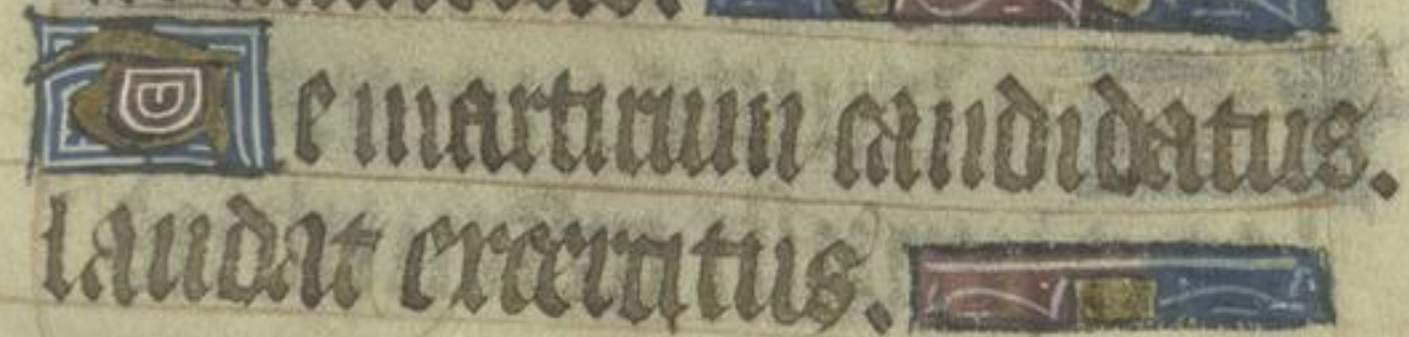 Te martirum candidatus.
laudat exercitus.